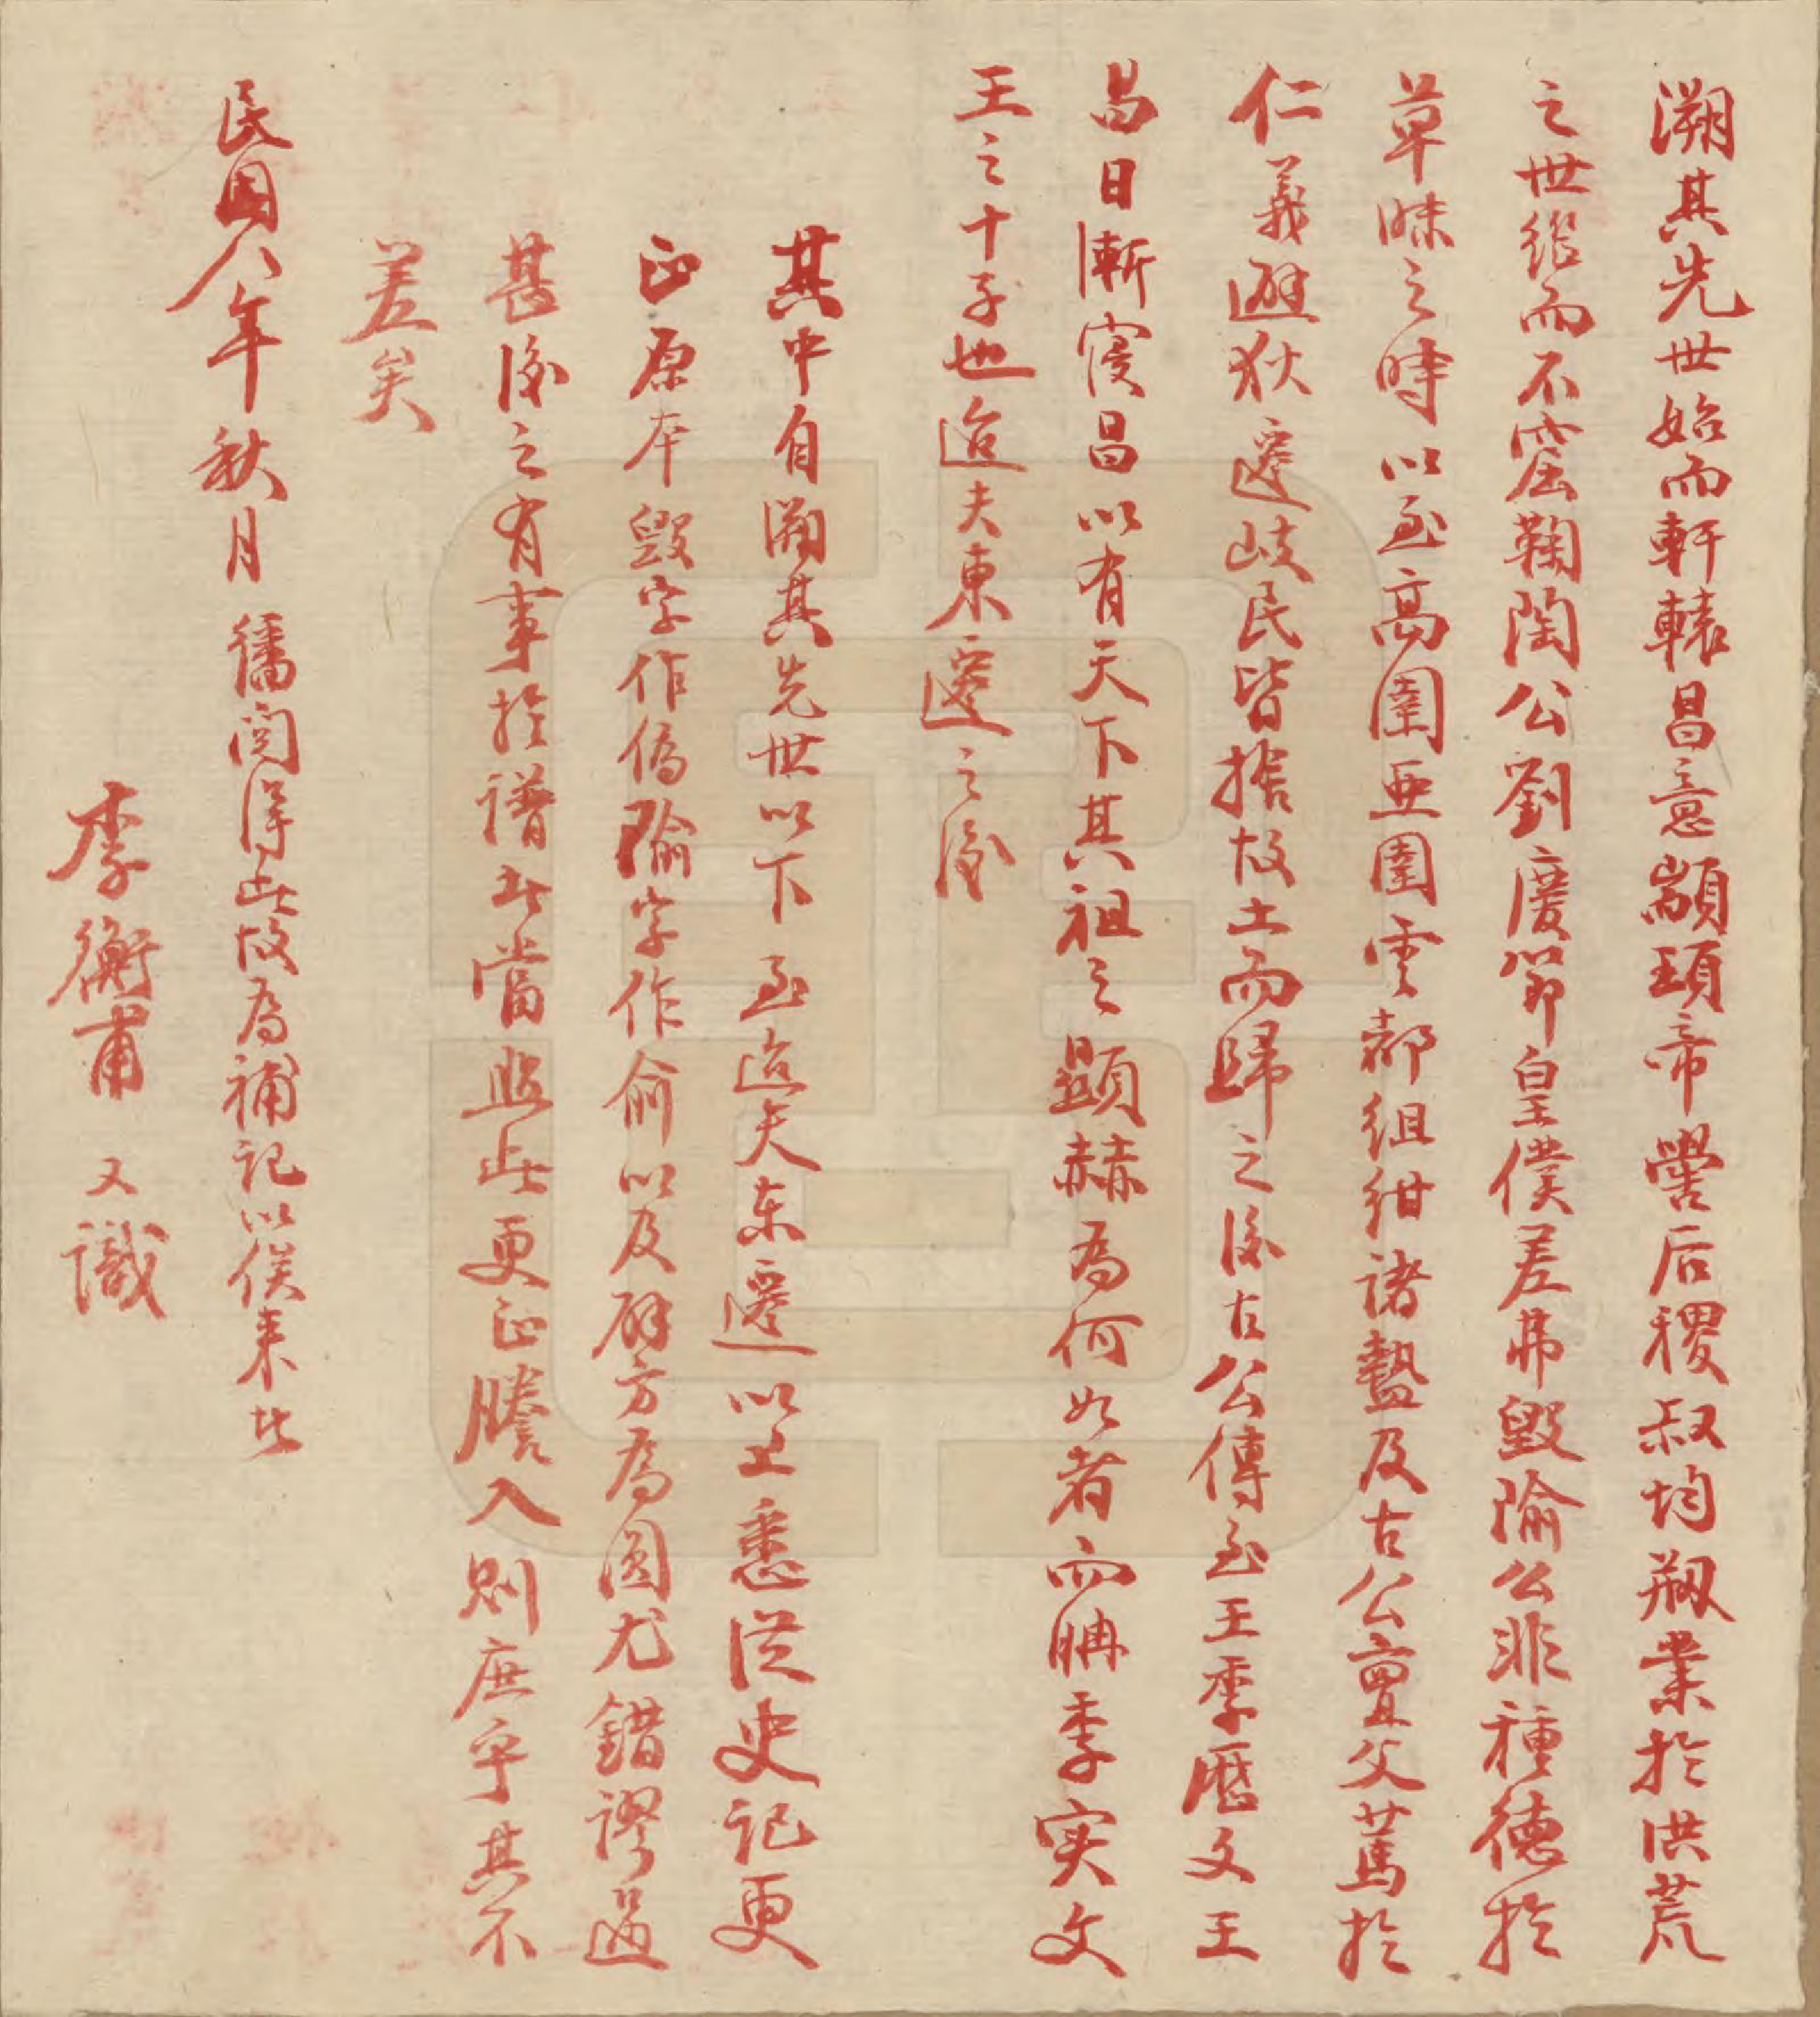 溯其先世始而軒轅昌意顓頊帝嚳后稷叔均剏業於洪荒
之世繼而不窋鞠陶公劉慶節皇僕差弗毀隃公非種德於
草昧之時以至高圉亜圉雲都组紺諸蟄及古公亶父蔫於
仁義避狄遷岐民皆捨故土而歸之後古公傳至王季歷文王
昌日漸寖昌以有天下其祖之顕赫為何如者而聃季实文
王之十子也迨夫東遷之後
其中自溯其先世以下至迨夫东遷以上悉從史記更
正原本毀字作偽隃字作俞以及辟方為圓尤錯謬過
甚後之有事於譜者當照此更正謄入则庶乎其不
差矣
民国八年秋月繙閲得此故為補記以俟来者
李衡甫又識